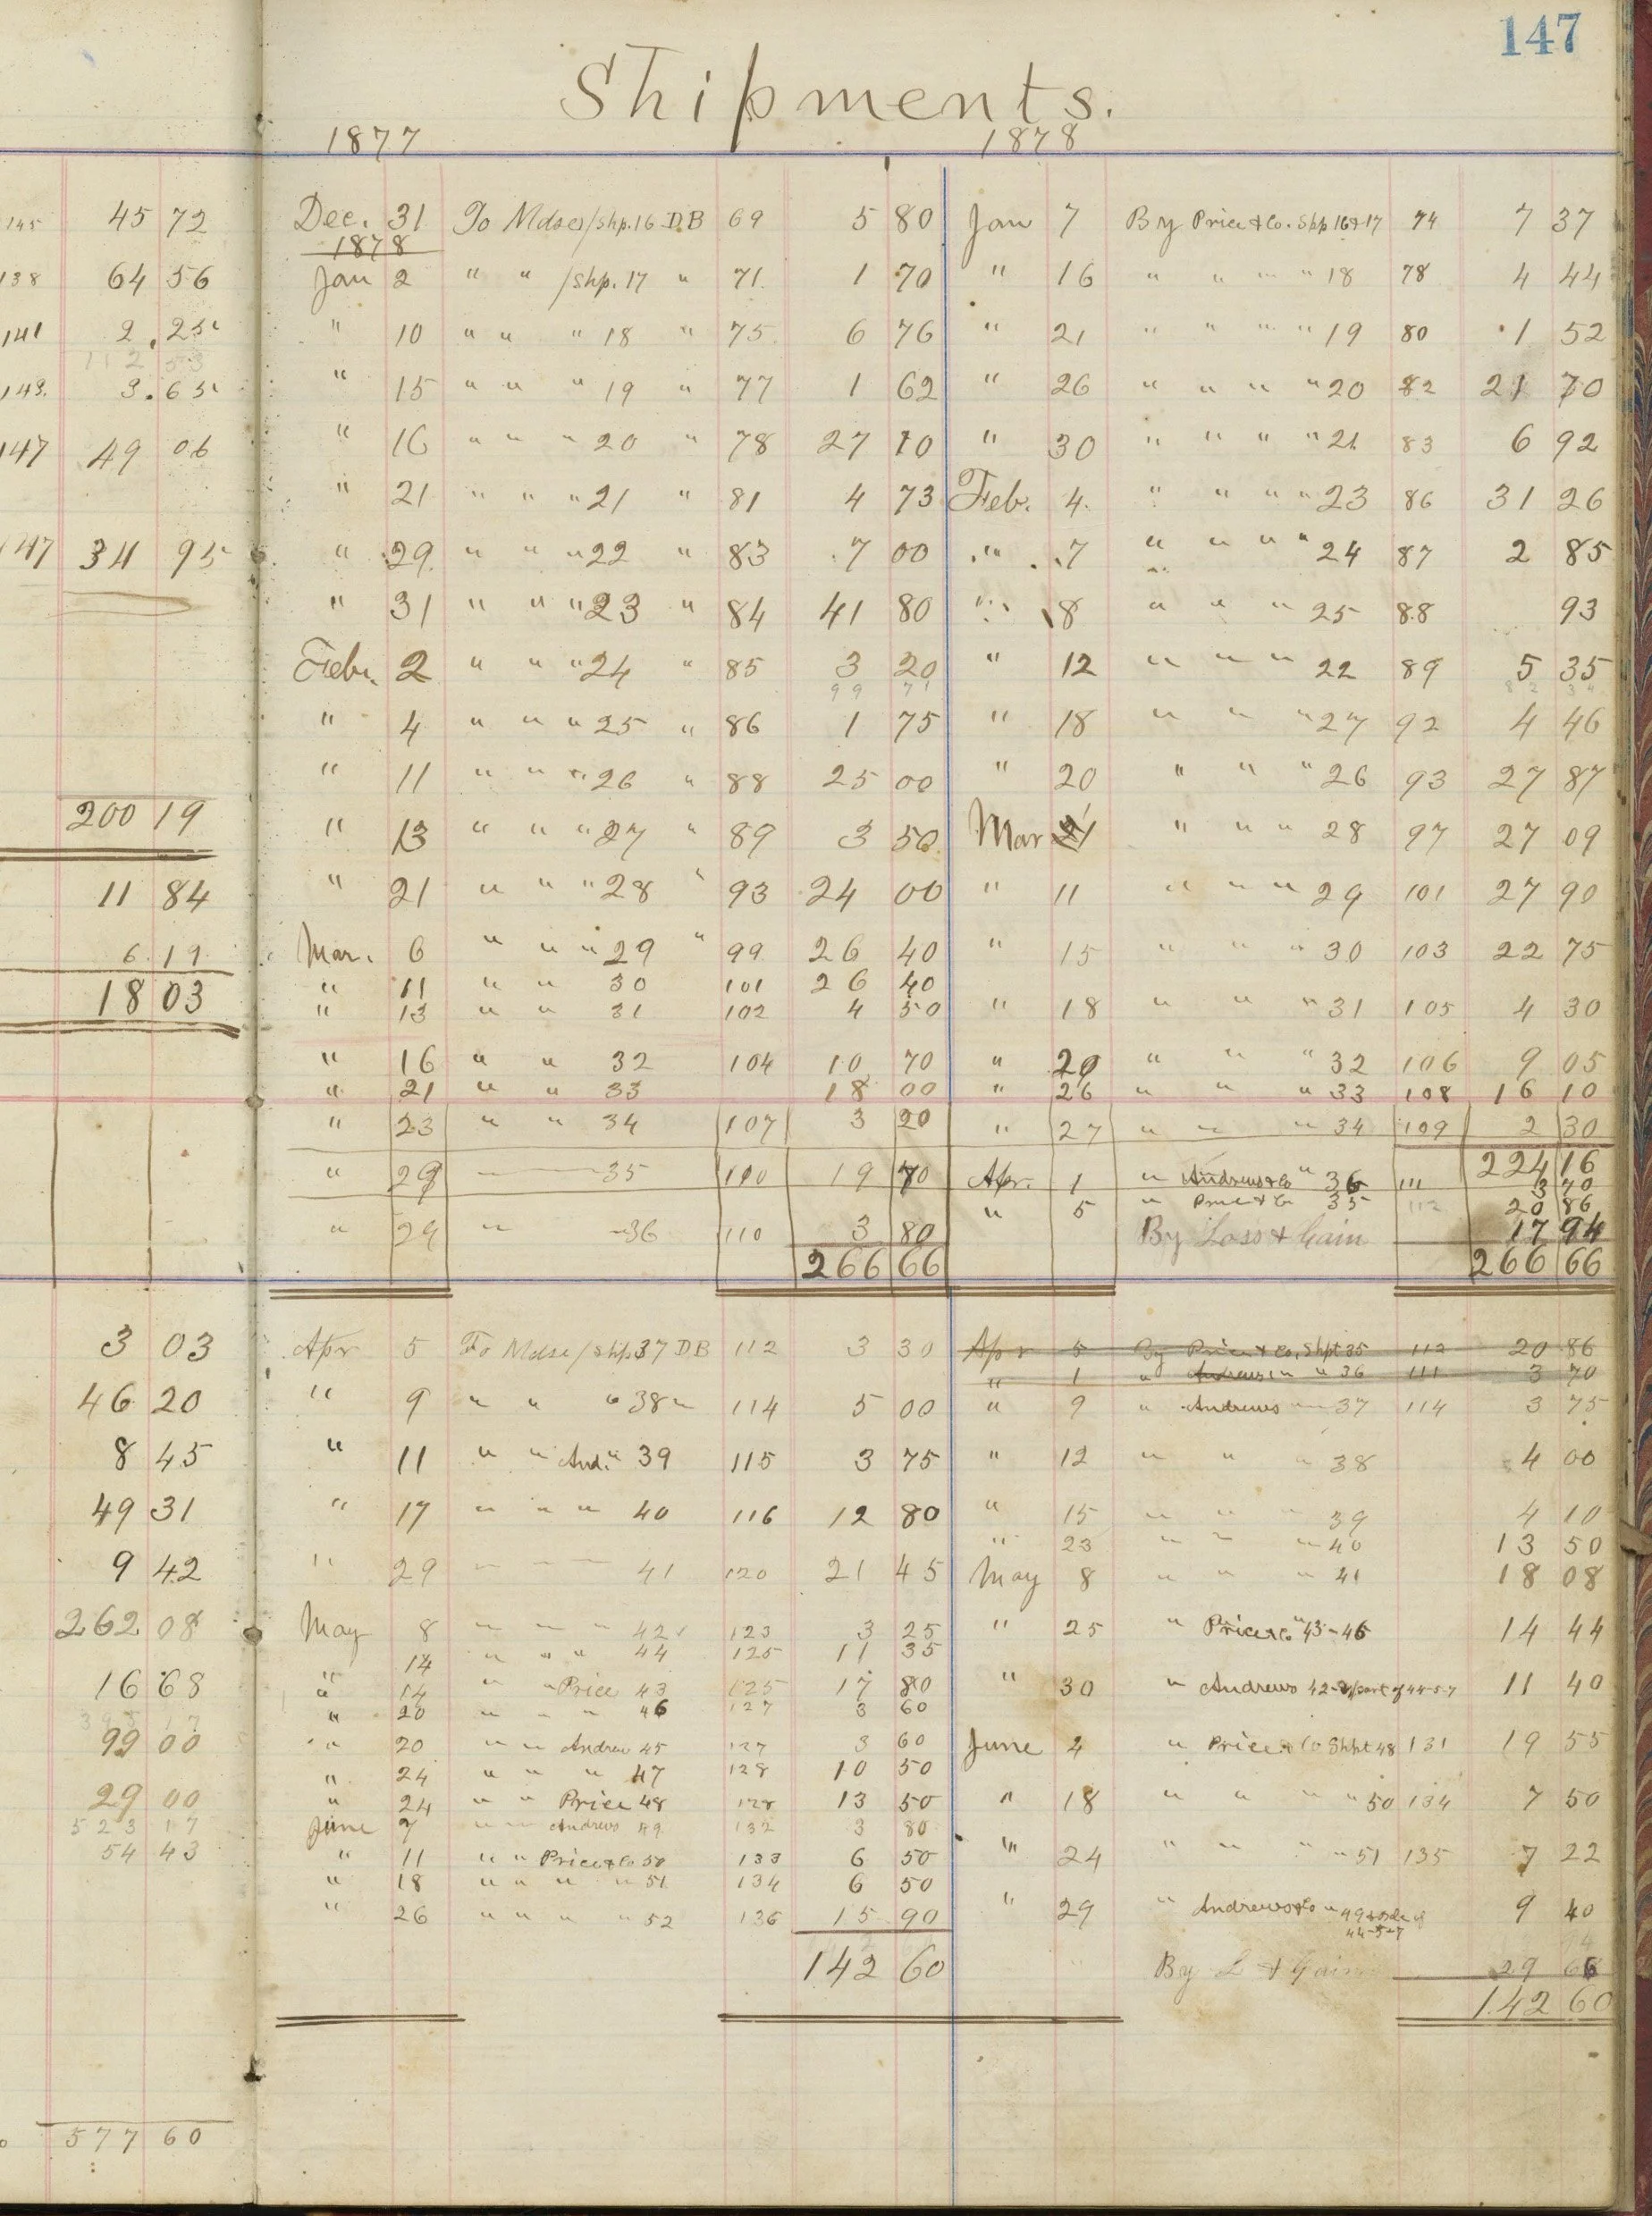 147
Shipments.
1877 1878
145 45 72 Dec. 31 To Mdses/Shp. 16 D.B 69 5 80 Jan 7 By Price & Co. Shp 16 & 17 74 7 37
1878
138 64 56 Jan 2 " " /Shp. 17 " 71 1 70 " 16 " " " " 18 78 4 44
141 2.25 " 10 " " " 18 " 75 6 76 " 21 " " " " 19 80 1 52
112 53
143. 3.65 " 15 " " " 19 " 77 1 62 " 26 " " " " 20 82 21 70
147 49 06 " 16 " " " 20 " 78 27 10 " 30 " " " " 21 83 6 92
" 21 " " " 21 " 81 4 73 Feb. 4. " " " " 23 86 31 26
147 34 95 " 29 " " " 22 " 83 7 00 " 7 " " " " 24 87 2 85
" 31 " " " 23 " 84 41 80 " 8 " " " 25 88 93
Feb. 2 " " " 24 " 85 3 20 " 12 " " " 22 89 5 35
99 71 82 34
" 4 " " " 25 " 86 1 75 " 18 " " " 27 92 4 46
" 11 " " " 26 " 88 25 00 " 20 " " " 26 93 27 87
200 19 " 13 " " " 27 " 89 3 50 Mar 1 " " " 28 97 27 09
11 84 " 21 " " " 28 " 93 24 00 " 11 " " " 29 101 27 90
6.19 Mar. 6 " " " 29 " 99 26 40 " 15 " " " 30 103 22 75
18 03 " 11 " " 30 101 26 40
" 13 " " 31 102 4 50 " 18 " " " 31 105 4 30
" 16 " " 32 104 10 70 " 20 " " " 32 106 9 05
" 21 " " 33 18 00 " 26 " " " 33 108 16 10
" 23 " " 34 107 3 20 " 27 " " " 34 109 2 30
224 16
" 29 " 35 110 19 70 Apr. 1 " Andrews & Co " 36 111 3 70
" 5 " Price & Co 35 112 20 86
" 29 " " 36 110 3 80 By Loss & Gain 17 94
266 66 266 66
3 03 Apr 5 To Mdse/Shp. 37 D.B 112 3 30 Apr 5 By Price & Co. Shpt 35 112 20 86
" 1 " Andrews " " 36 111 3 70
46 20 " 9 " " " 38 " 114 5 00 " 9 " Andrews " 37 114 3 75
8 45 " 11 " " And. " 39 115 3 75 " 12 " " " 38 4 00
49 31 " 17 " " " 40 116 12 80 " 15 " " " 39 4 10
" 23 " " " 40 13 50
9 42 " 29 " " " 41 120 21 45 May 8 " " " 41 18 08
262 08 May 8 " " " 42 123 3 25 " 25 " Price & Co " 43-46 14 44
" 14 " " " 44 125 11 35
16 68 " 14 " " Price 43 125 17 80 " 30 " Andrews 42-& part of 44-5-7 11 40
" 20 " " " 46 127 3 60
99 00 " 20 " " Andrew 45 127 3 60 June 4 " Price & Co Shpt 48 131 19 55
" 24 " " " 47 128 10 50
29 00 " 24 " " Price 48 128 13 50 " 18 " " " " 50 134 7 50
523 17 June 7 " " Andrews 49 132 3 80
54 43 " 11 " " Price & Co 50 133 6 50 " 24 " " " " 51 135 7 22
" 18 " " " " 51 134 6 50
" 26 " " " " 52 136 15 90 " 29 " Andrews & Co " 49 & of 9 40
44-5-7
142 60 By L & Gain 29 66
142 60
577 60